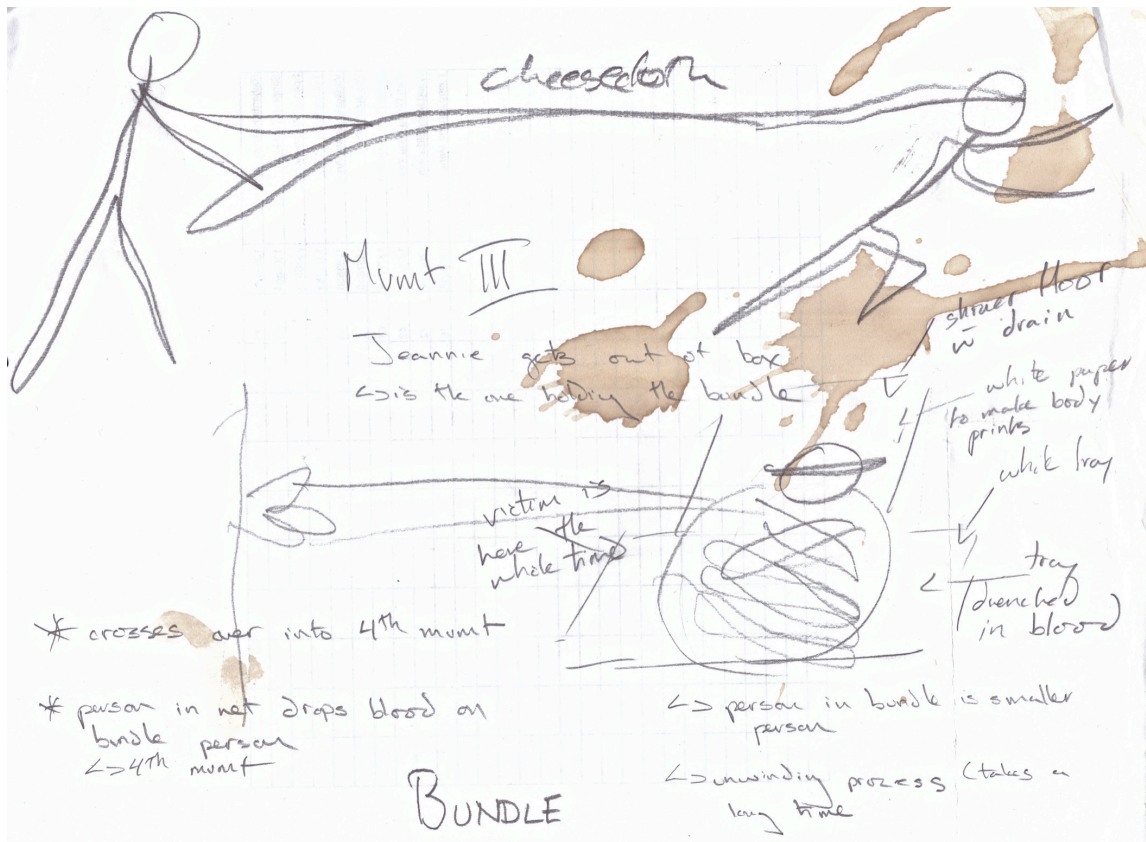 cheesecloth
Mvmt III
Jeannie gets out of box
<-> is the one holding the bundle
shower floor
w̄ drain
white paper
to make body
prints
white tray
victim is
here the
whole time
tray
drenched
in blood
* crosses over into 4th mvmt
* person in net drops blood on
bundle person
<-> 4th mvmt
<-> person in bundle is smaller
person
<-> unwinding process (takes a
long time
BUNDLE